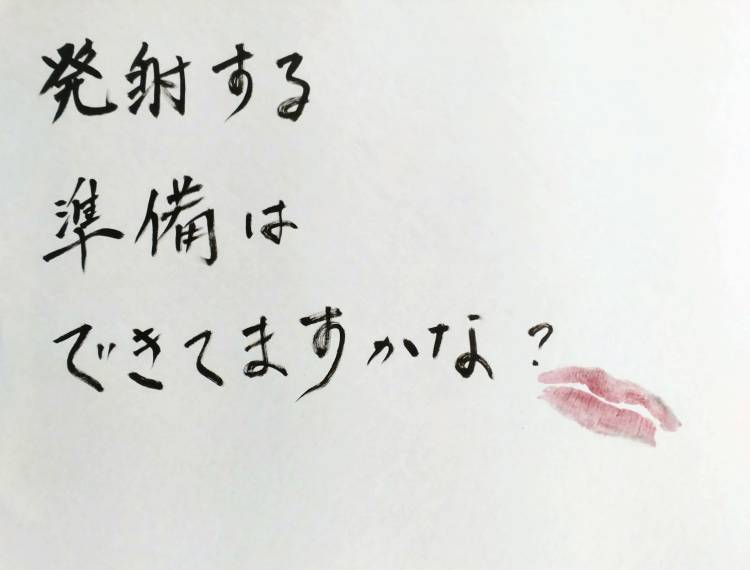 発射する
準備は
できてますかな?